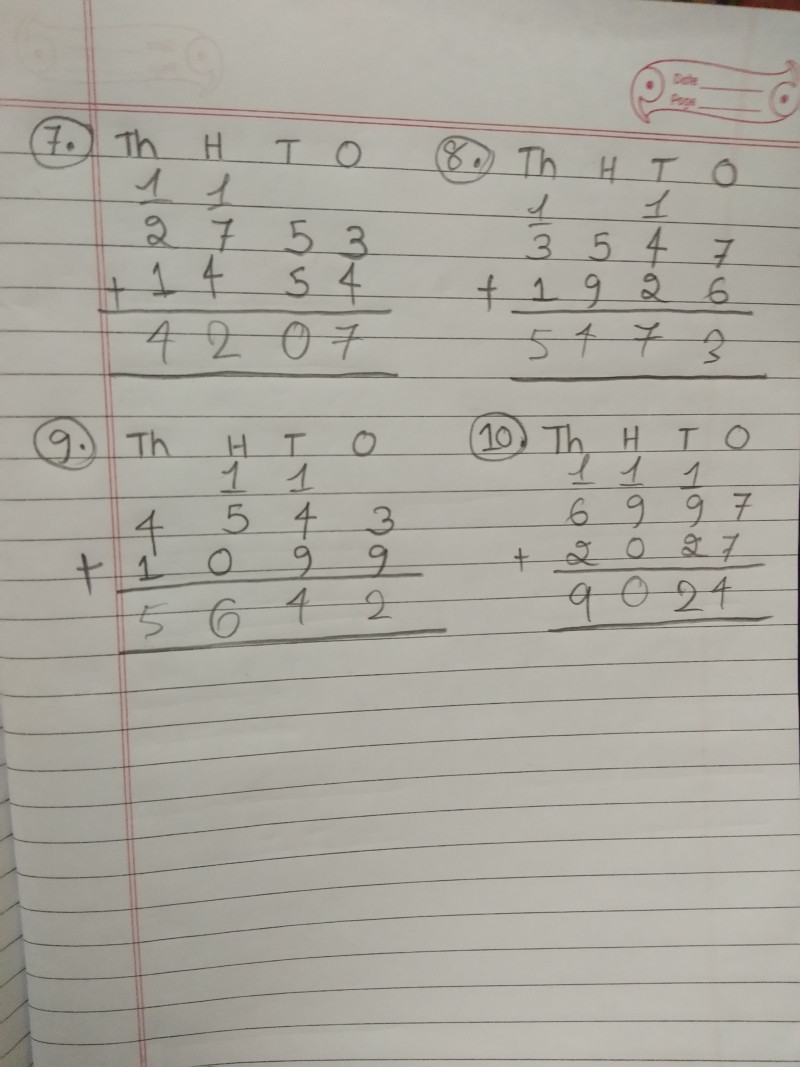 Date
Page
7. Th H T O
1 1
2 7 5 3
+ 1 4 5 4
4 2 0 7
8. Th H T O
1 1
3 5 4 7
+ 1 9 2 6
5 4 7 3
9. Th H T O
1 1
4 5 4 3
+ 1 0 9 9
5 6 4 2
10. Th H T O
1 1 1
6 9 9 7
+ 2 0 2 7
9 0 2 4